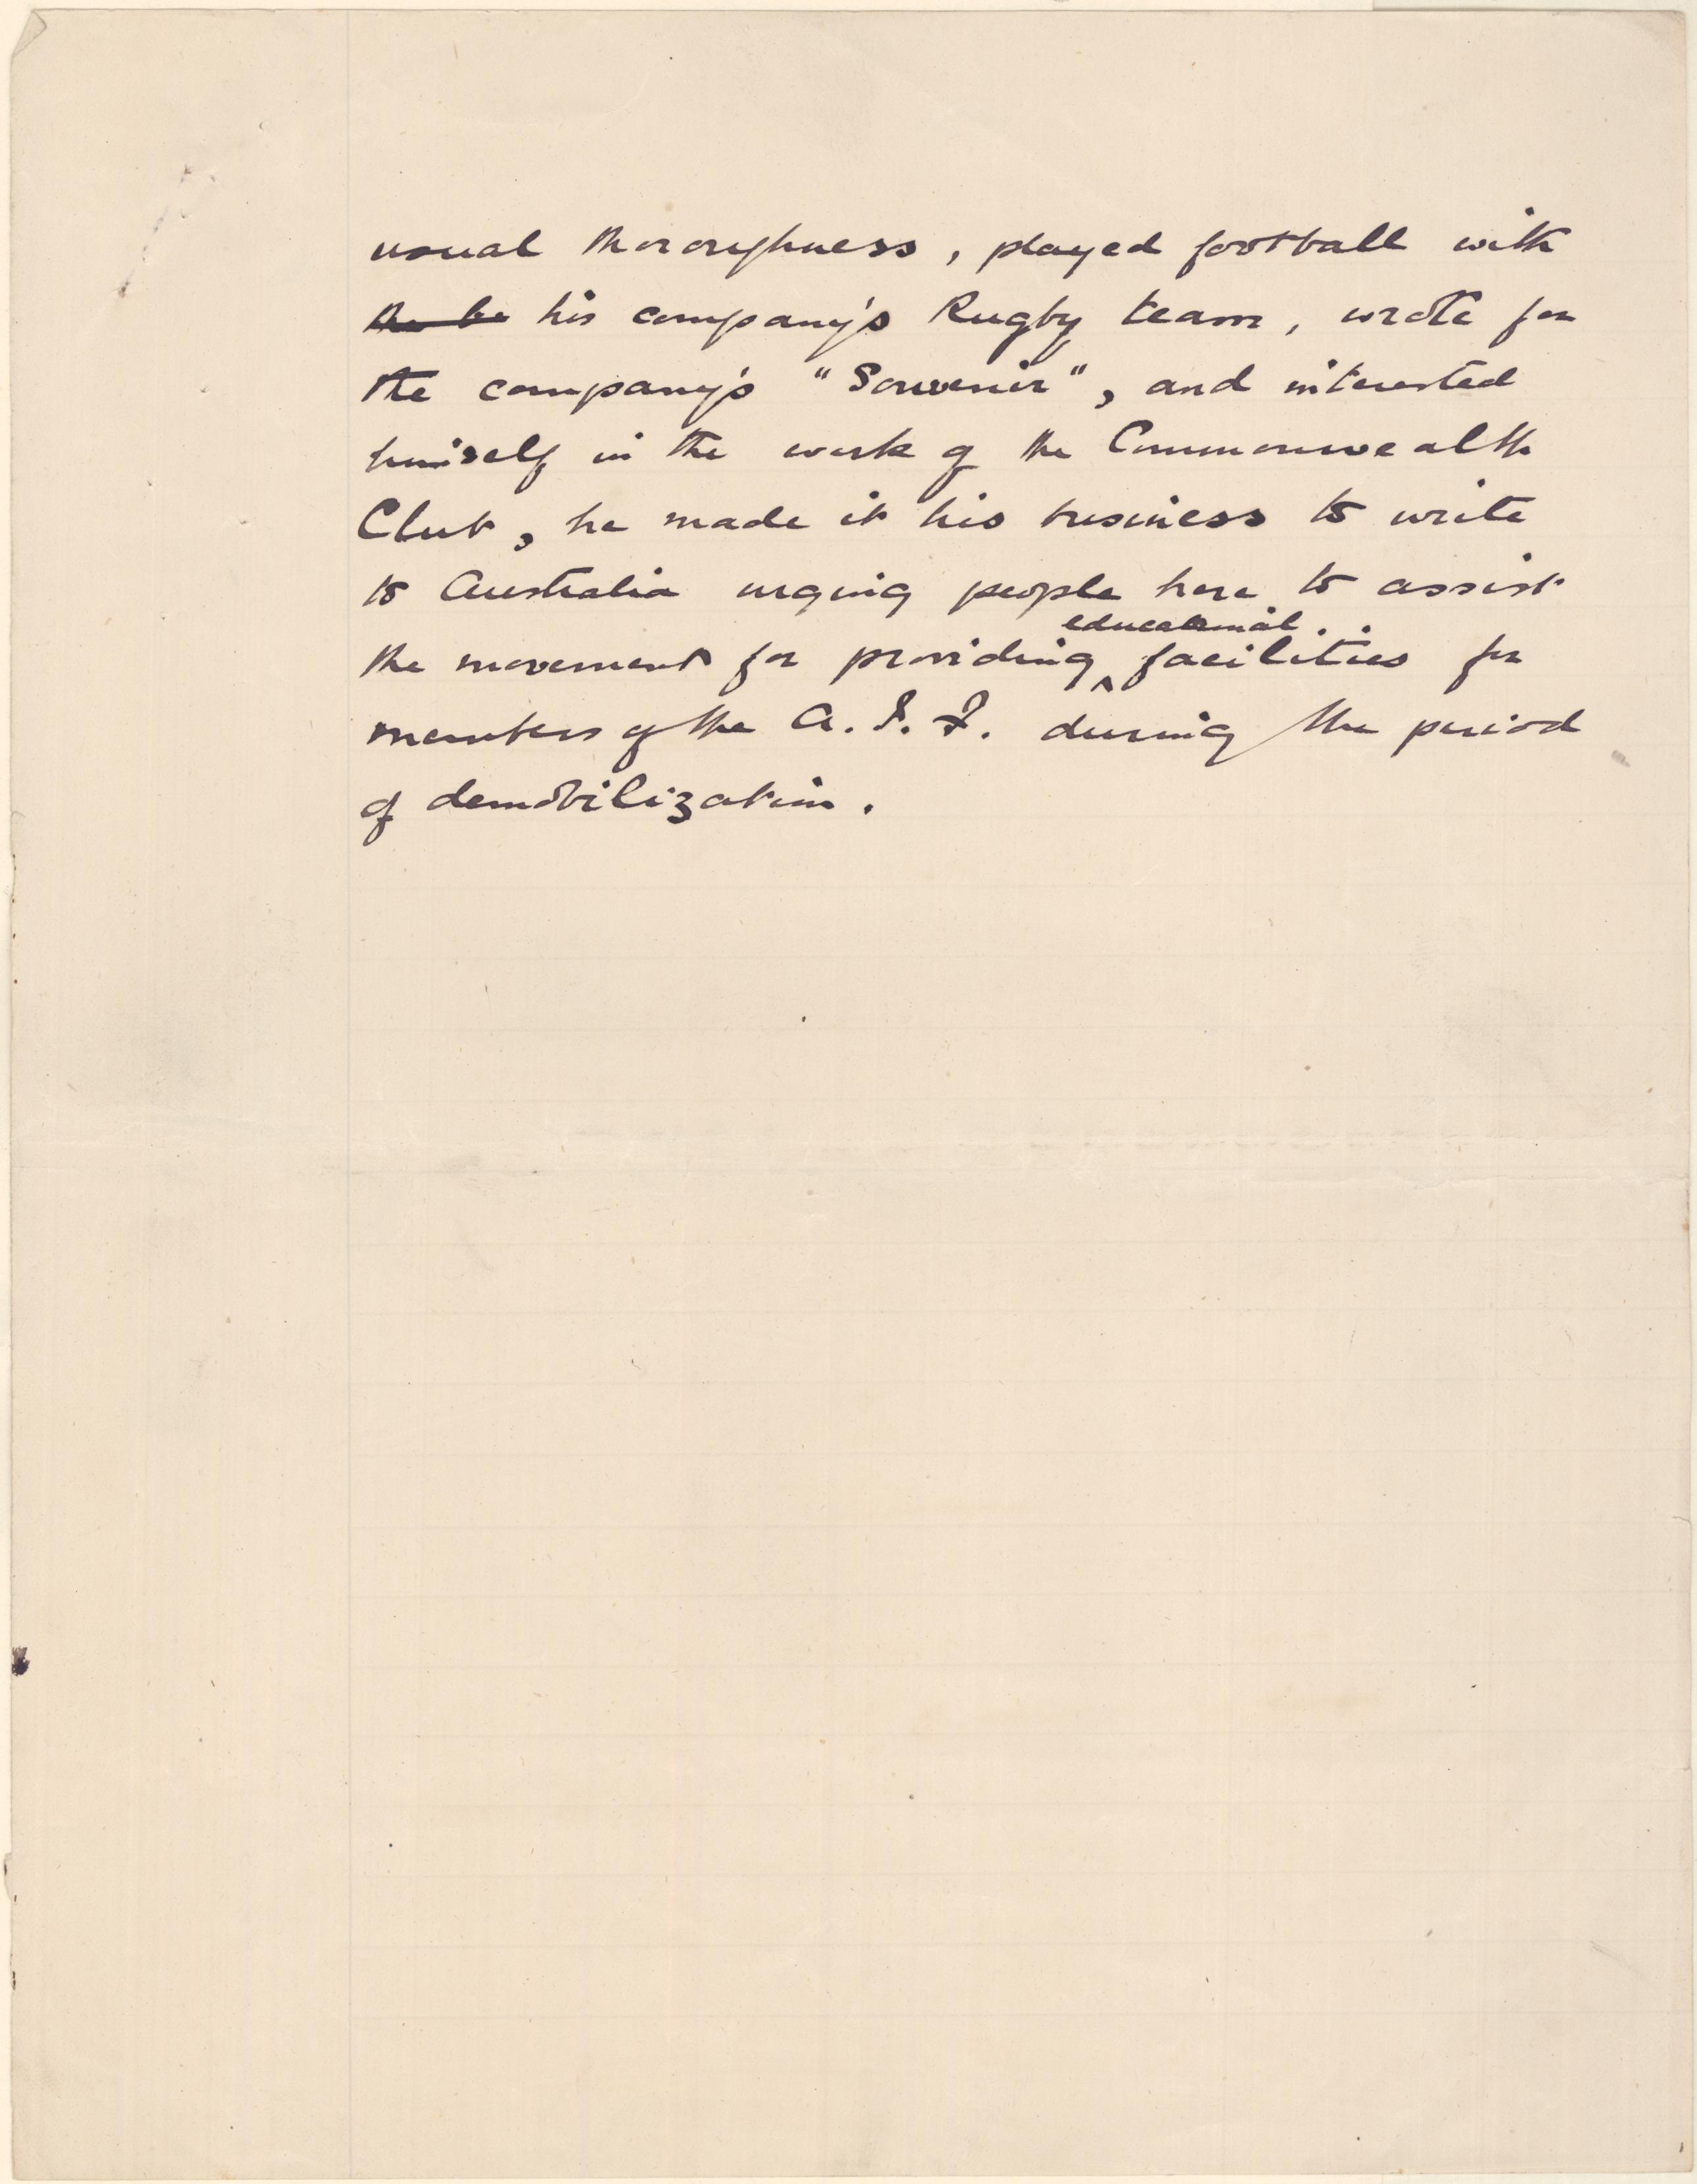 usual thoroughness, played football with
the be his company's Rugby team, wrote for
the company's "Souvenir", and interested
himself in the work of the Commonwealth
Club, he made it his business to write
to Australia urging people here to assist
educational
the movement for providing ^ facilities for
members of the A.I.F. during the period
of demobilization.